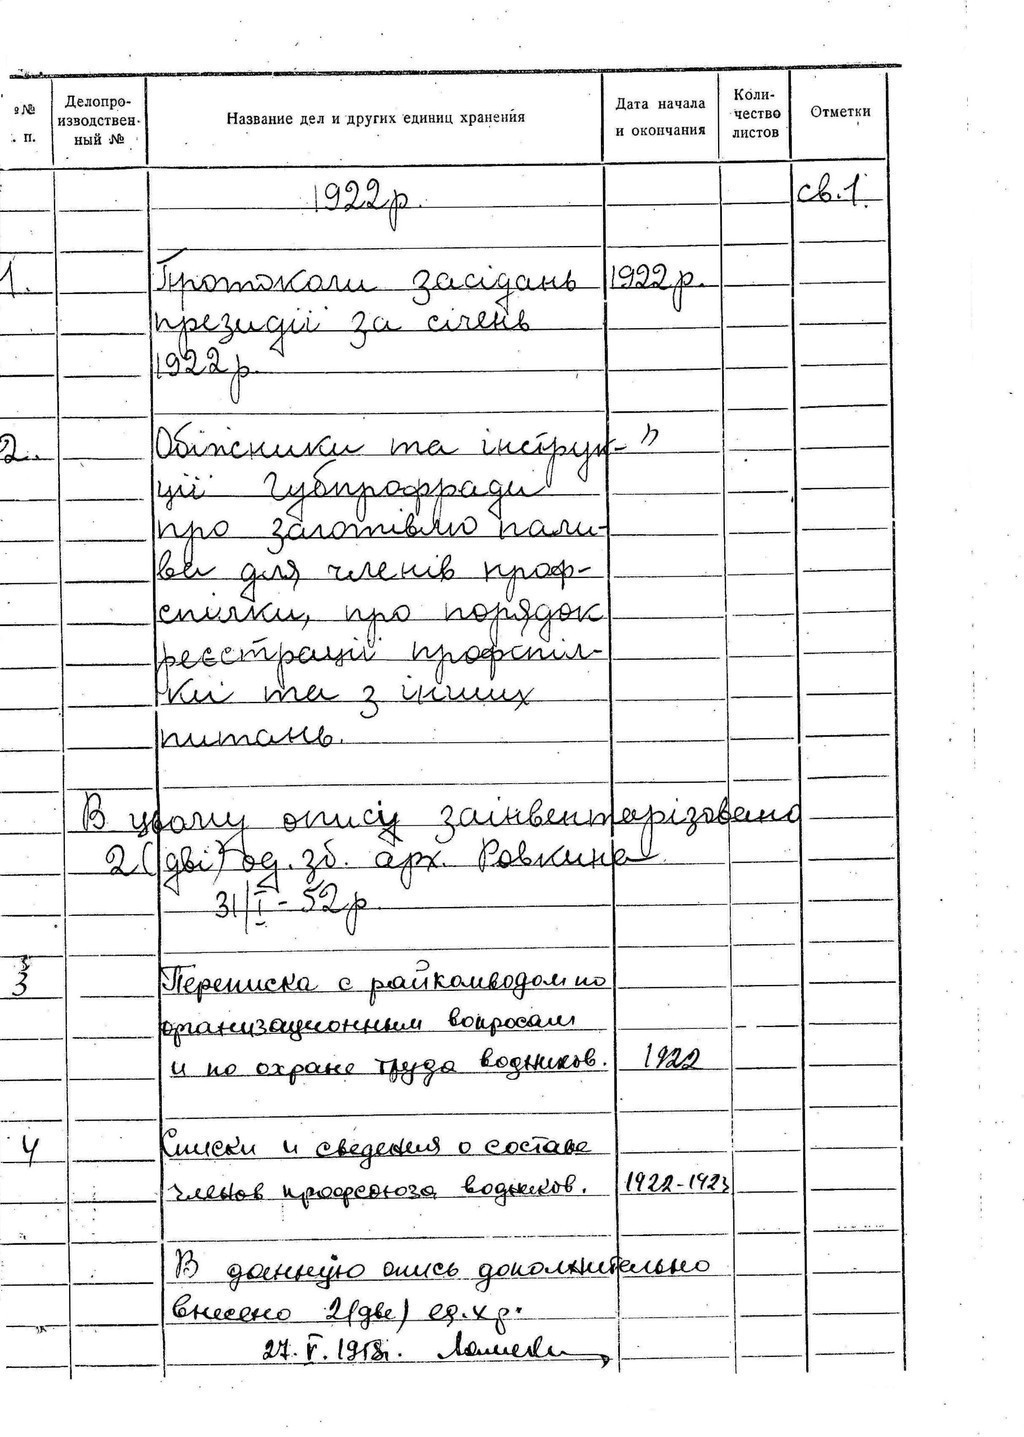 №№ п. Делопро-изводствен-ный № Название дел и других единиц хранения Дата начала и окончания Коли-чество листов Отметки
1922 р. св. 1.
1. Протоколи засідань 1922 р.
президії за січень
1922 р.
2. Обіжники та інструк- –"
ції Губпрофради
про заготівлю пали-
ва для членів проф-
спілки, про порядок
реєстрації профспіл-
ки та з інших
питань.
В цьому опису заінвентарізовано
2 (дві) од. зб. арх. Ровкина
31/I - 52 р.
3 Переписка с райкомводом по
организационным вопросам
и по охране труда водников. 1922
4 Списки и сведения о составе
членов профсоюза водников. 1922-1923
В данную опись дополнительно
внесено 2 (две) ед. хр.
27. V. 1958г.